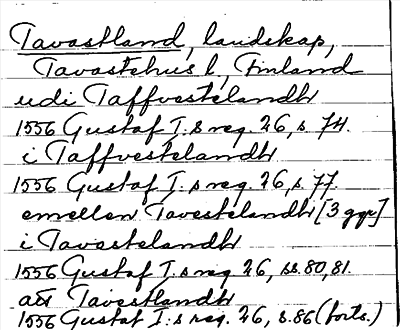 Tavastland, landskap,
Tavastehus l., Finland
udi Taffvestelandh
1556 Gustaf I:s reg. 26, s. 74.
i Taffvestelandh
1556 Gustaf I:s reg. 26, s. 77.
emellen Tavestelandh [3 ggr]
i Tavastelandh
1556 Gustaf I:s reg. 26, ss. 80, 81.
att Tavestlandh
1556 Gustaf I:s reg. 26, s. 86 (forts.)